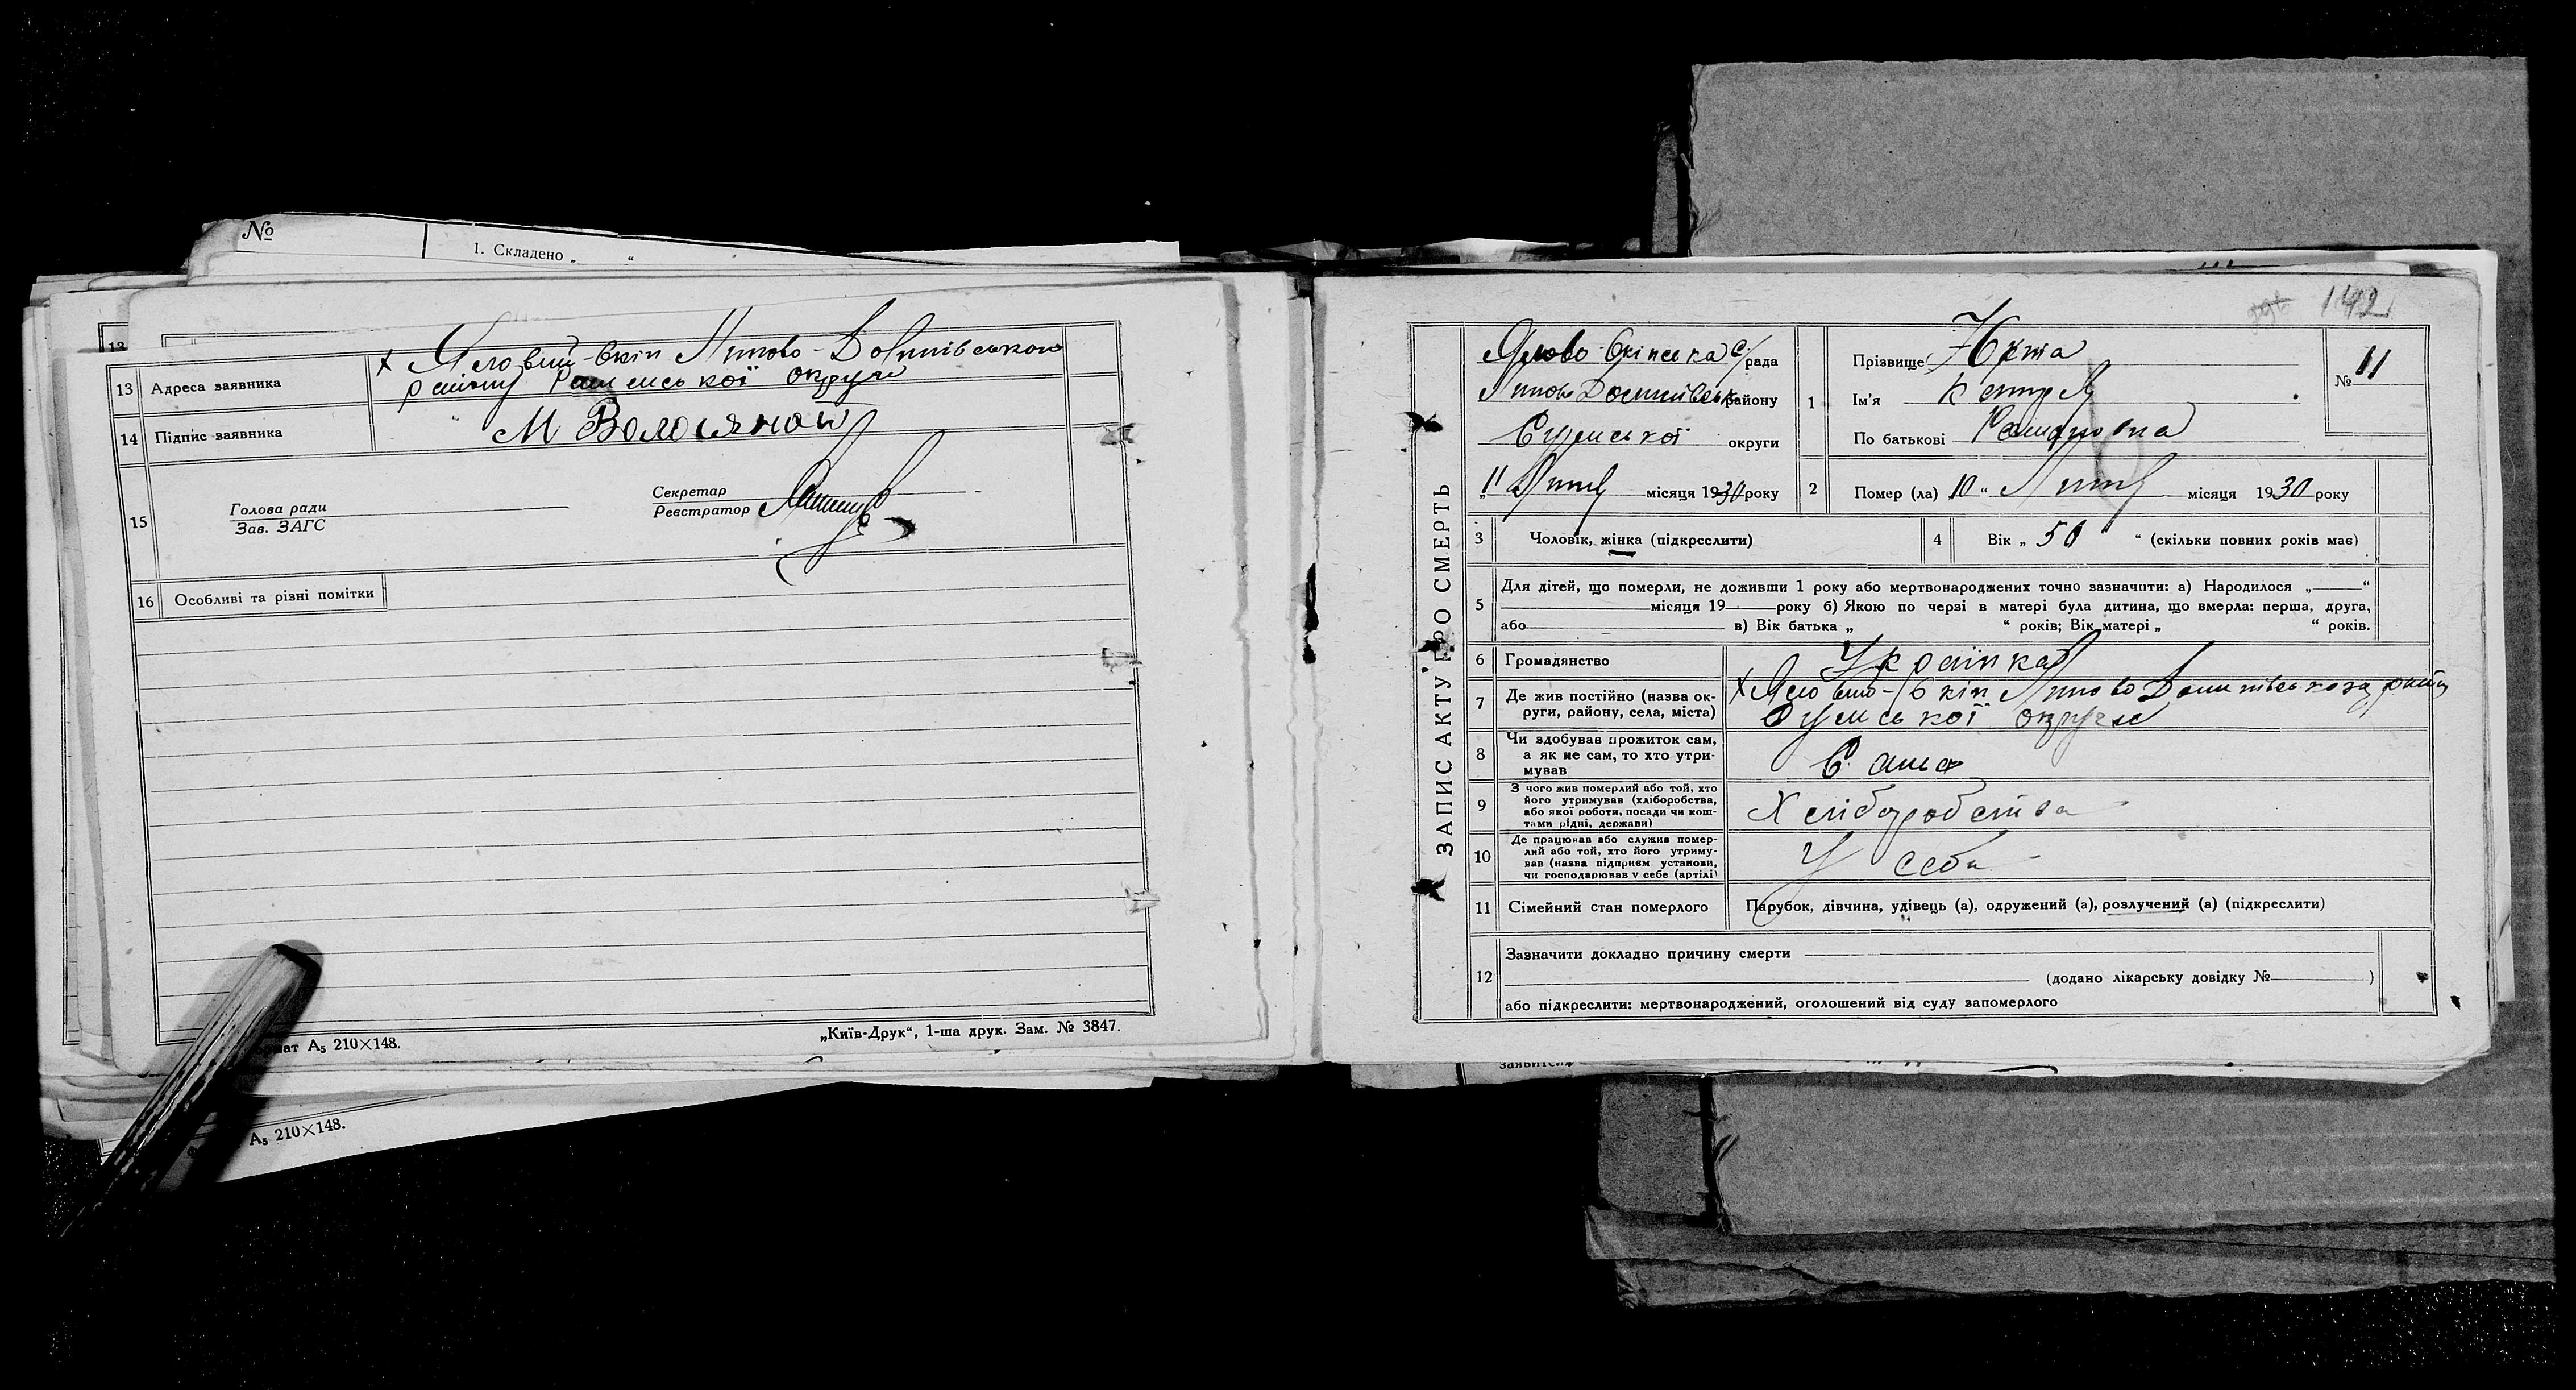 №
1. Складено „ “
13
13 Адреса заявника х Яловий-Окіп Липово-Долинівського
району Сумської округи
14 Підпис заявника М Волосяной
15 Голова ради
Зав. ЗАГС
Секретар
Реєстратор
16 Особливі та різні помітки
„Київ-Друк“, 1-ша друк. Зам. № 3847.
А₅ 210×148.
А₅ 210×148.
142
ЗАПИС АКТУ ПРО СМЕРТЬ
Ялово-Окіпська с/рада
Липово Долинівськ району
Сумської округи
„11 Лютий місяця 1930 року
1 Прізвище
Ім'я
По батькові
№ 11
2 Помер (ла) 10 “ Лютий місяця 1930 року
3 Чоловік, жінка (підкреслити)
4 Вік „ 50 “ (скільки повних років має)
5 Для дітей, що померли, не доживши 1 року або мертвонароджених точно зазначити: а) Народилося „ “
місяця 19 року б) Якою по черзі в матері була дитина, що вмерла: перша, друга,
або в) Вік батька „ “ років; Вік матері „ “ років.
6 Громадянство Українка
7 Де жив постійно (назва ок-
руги, району, села, міста)
х Яловий-Окіп Липово Долинівського району
Сумської округи
8 Чи здобував прожиток сам,
а як не сам, то хто утри-
мував
Сама
9 З чого жив померлий або той, хто
його утримував (хліборобства,
або якої роботи, посади чи кош-
тами рідні, держави)
Хліборобства
10 Де працював або служив помер-
лий або той, хто його утриму-
вав (назва підприєм установи,
чи господарював у себе (артілі)
У себе
11 Сімейний стан померлого Парубок, дівчина, удівець (а), одружений (а), розлучений (а) (підкреслити)
12 Зазначити докладно причину смерти
(додано лікарську довідку № )
або підкреслити: мертвонароджений, оголошений від суду запомерлого